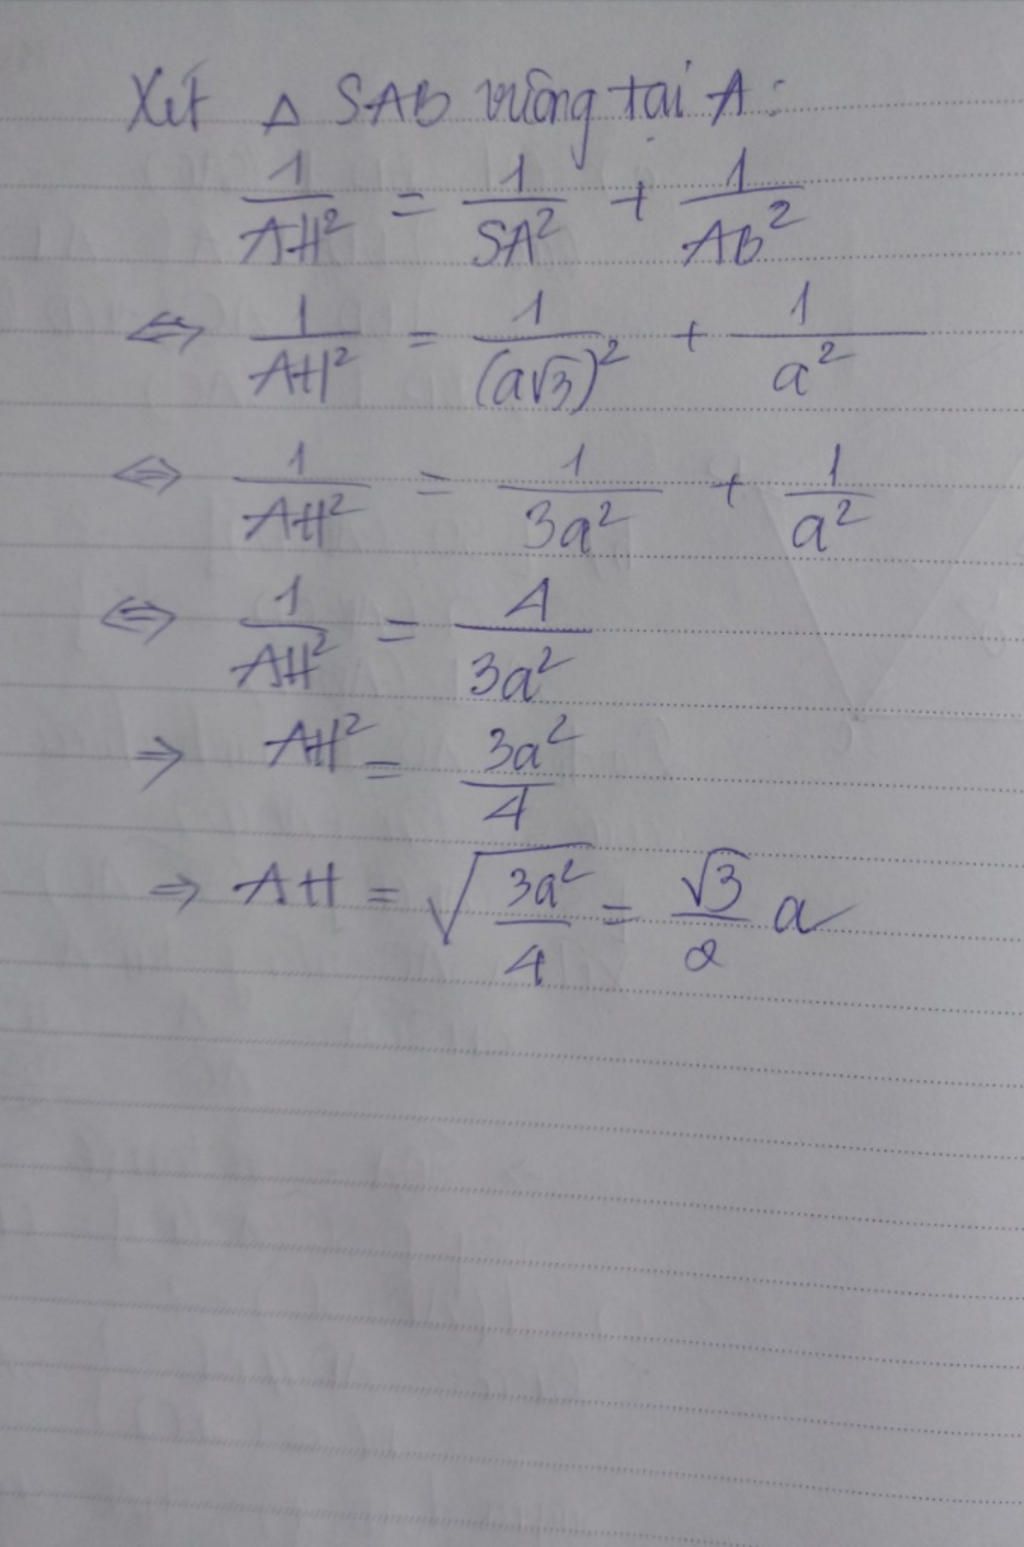 Xét Δ SAB vuông tại A:
1/AH² = 1/SA² + 1/AB²
⇔ 1/AH² = 1/(a√3)² + 1/a²
⇔ 1/AH² = 1/3a² + 1/a²
⇔ 1/AH² = 4/3a²
⇒ AH² = 3a²/4
⇒ AH = √(3a²/4) = √3/2 a